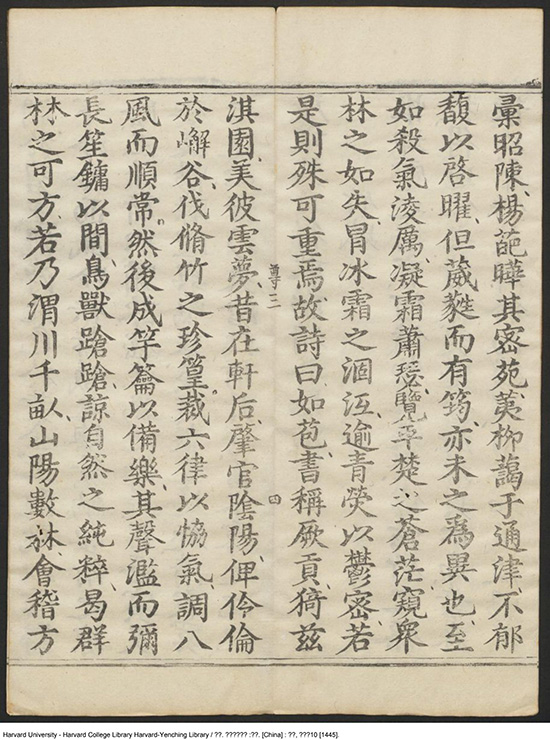 彙昭陳楊葩曄其密苑荑柳藹于通津不郁
馥以啓曜但葳蕤而有筠亦未之爲異也至
如殺氣淩厲凝霜蕭瑟覽平楚之蒼茫窺衆
林之如失冒冰霜之涸沍逾青熒以鬱密若
是則殊可重焉故詩曰如苞書稱厥貢猗兹
三 四
淇園美彼雲夢昔在軒后肇官陰陽俾伶倫
於嶰谷伐脩竹之珍篁裁六律以恊氣調八
風而順常然後成竽籥以備樂其聲濫而彌
長笙鏞以間鳥獸蹌蹌諒自然之純粹曷群
林之可方若乃渭川千畝山陽數林會稽方
Harvard University - Harvard College Library Harvard-Yenching Library / ??. ?????? :??. [China] : ??, ???10 [1445].